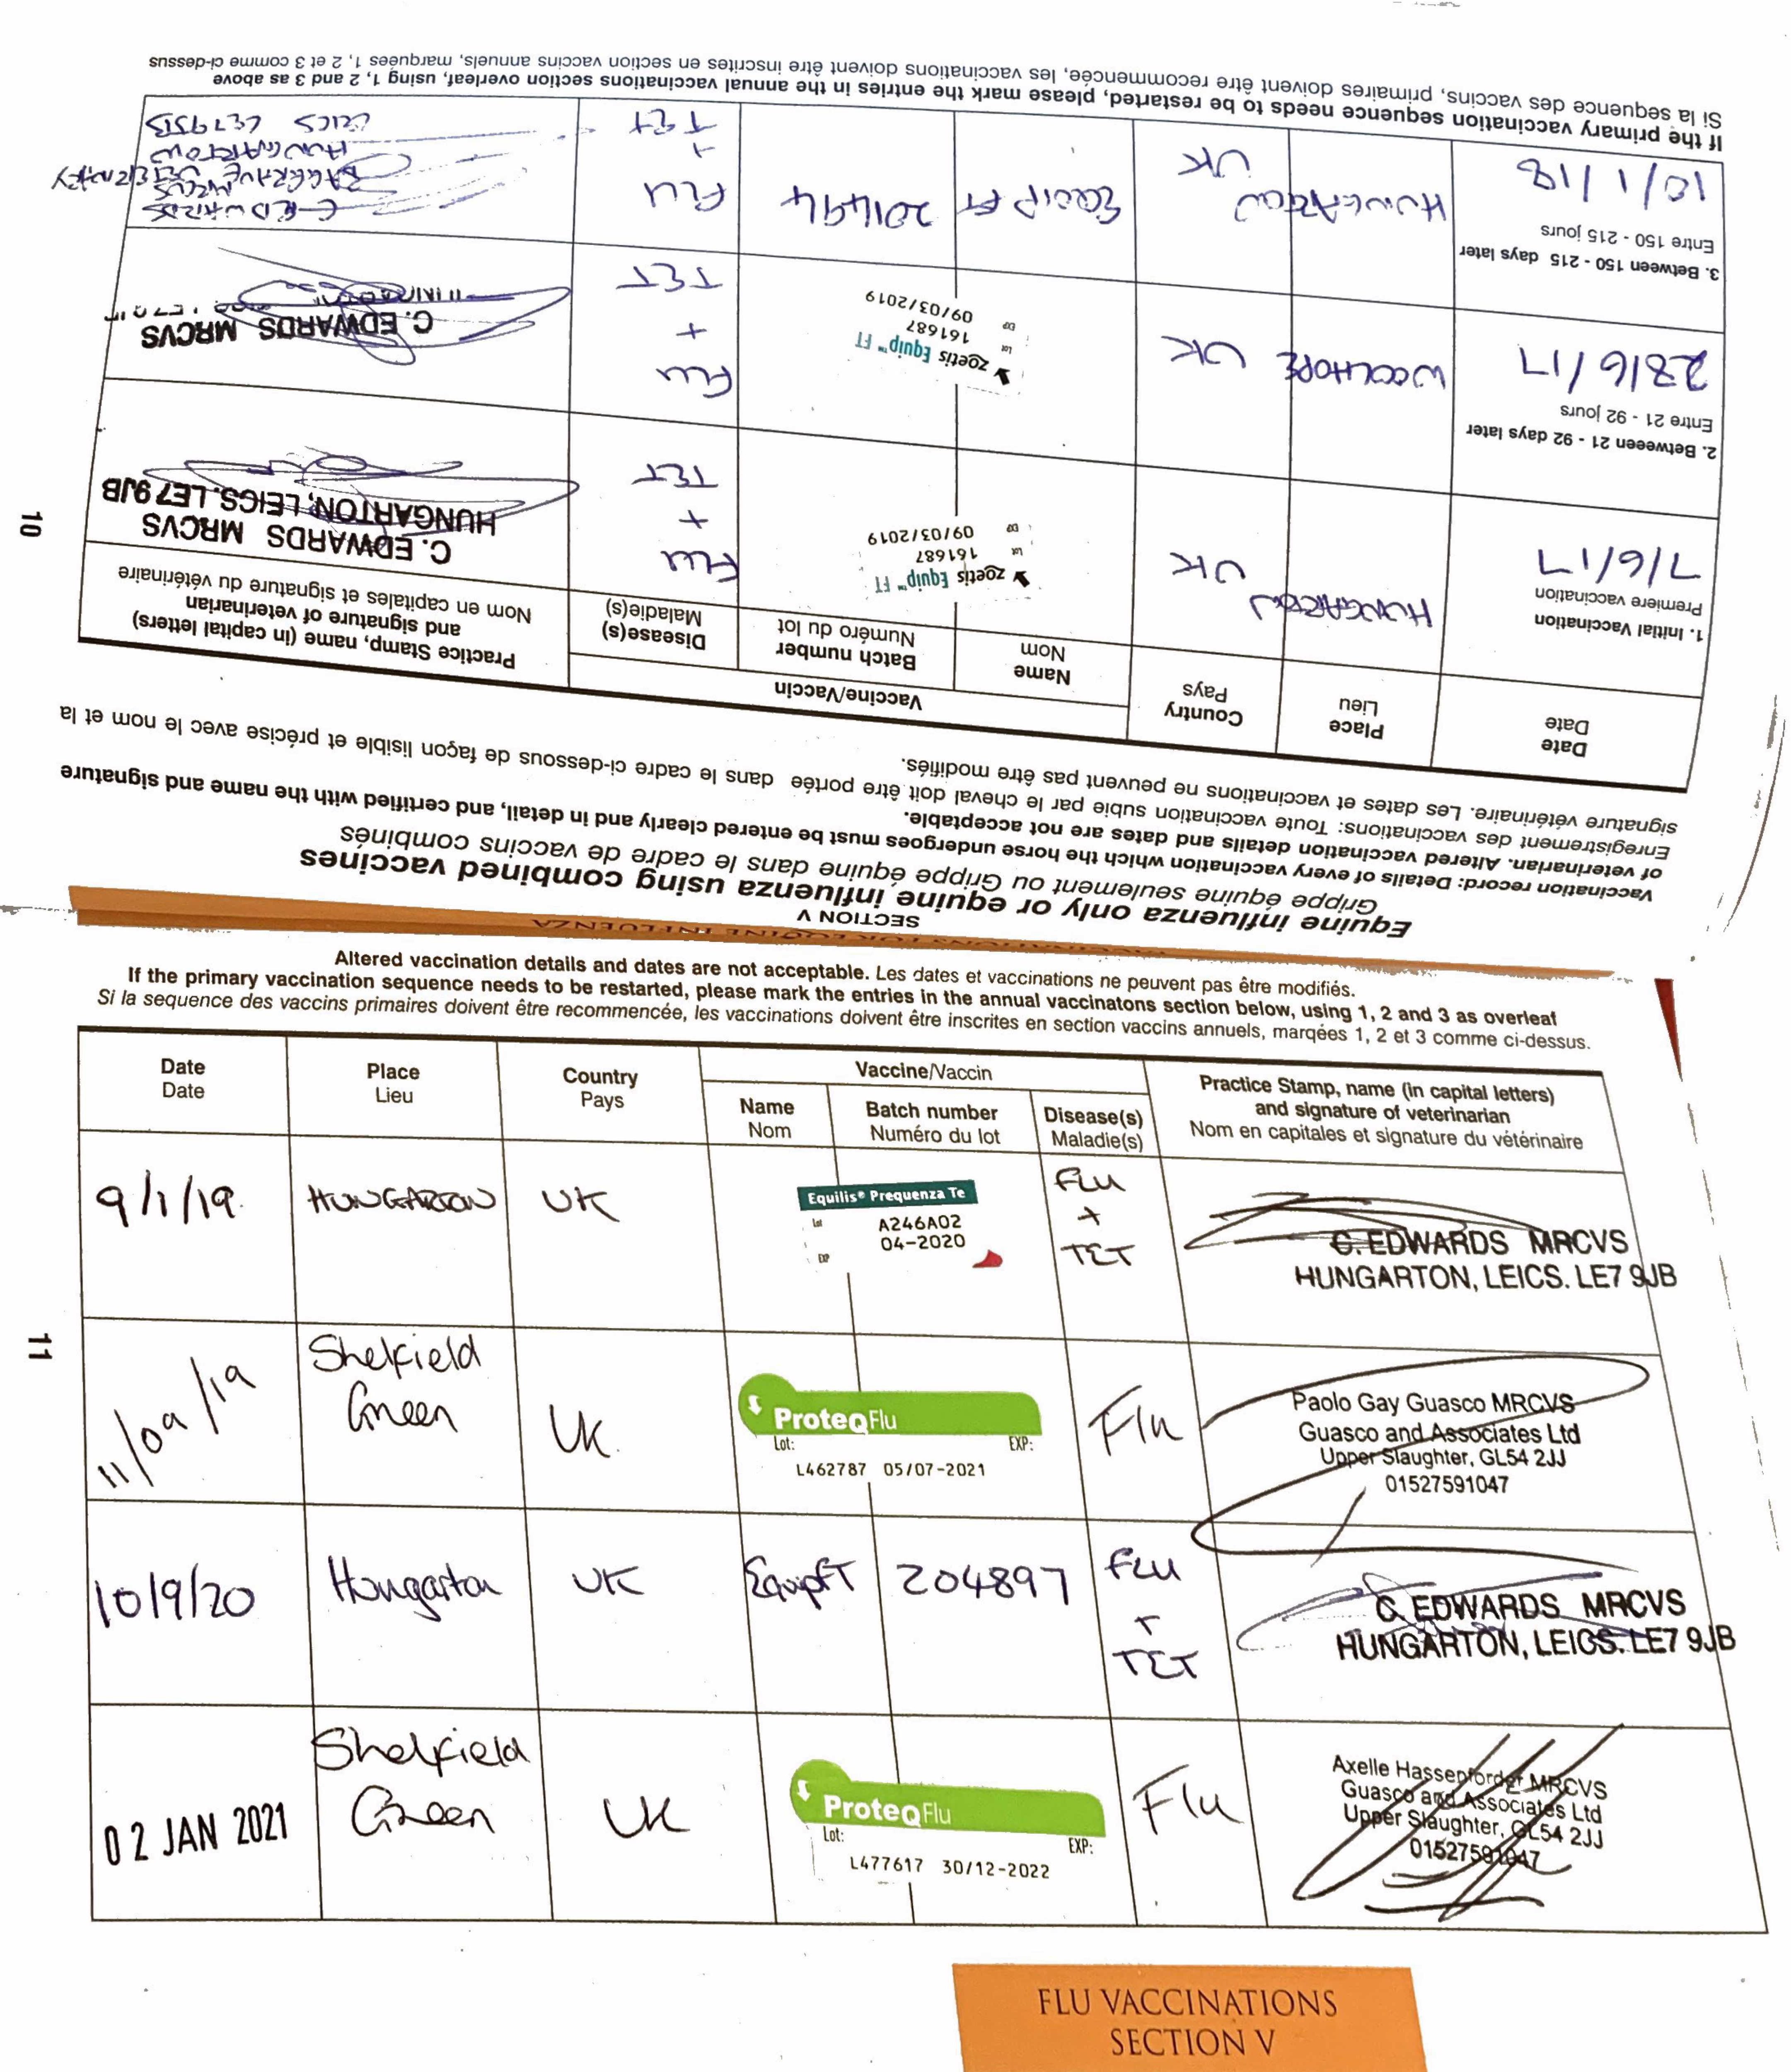 10
SECTION V
Equine influenza only or equine influenza using combined vaccines
Grippe équine seulement ou Grippe équine dans le cadre de vaccins combinés
Vaccination record: Details of every vaccination which the horse undergoes must be entered clearly and in detail, and certified with the name and signature
of veterinarian. Altered vaccination details and dates are not acceptable.
Enregistrement des vaccinations: Toute vaccination subie par le cheval doit être portée dans le cadre ci-dessous de façon lisible et précise avec le nom et la
signature vétérinaire. Les dates et vaccinations ne peuvent pas être modifiés.
Date
Date
Place
Lieu
Country
Pays
Vaccine/Vaccin
Name
Nom
Batch number
Numéro du lot
Disease(s)
Maladie(s)
Practice Stamp, name (in capital letters)
and signature of veterinarian
Nom en capitales et signature du vétérinaire
1. Initial Vaccination
Premiere vaccination
7/6/17
HUNGARTON
UK
zoetis Equip™ FT
Lot 161687
EXP 09/03/2019
FLU
+
TET
C. EDWARDS MRCVS
HUNGARTON, LEICS. LE7 9JB
2. Betweeen 21 - 92 days later
Entre 21 - 92 jours
28/6/17
WOOLHOPE
UK
zoetis Equip™ FT
Lot 161687
EXP 09/03/2019
FLU
+
TET
C. EDWARDS MRCVS
3. Between 150 - 215 days later
Entre 150 - 215 jours
10/1/18
HUNGARTON
UK
EQUIP FT
201494
FLU
+
TET
C EDWARDS
MRCVS
BAGGRAVE VETERINARY
HUNGARTON
LEICS LE79JB
If the primary vaccination sequence needs to be restarted, please mark the entries in the annual vaccinations section overleaf, using 1, 2 and 3 as above
Si la sequence des vaccins, primaires doivent être recommencée, les vaccinations doivent être inscrites en section vaccins annuels, marquées 1, 2 et 3 comme ci-dessus
11
Altered vaccination details and dates are not acceptable. Les dates et vaccinations ne peuvent pas être modifiés.
If the primary vaccination sequence needs to be restarted, please mark the entries in the annual vaccinatons section below, using 1, 2 and 3 as overleaf
Si la sequence des vaccins primaires doivent être recommencée, les vaccinations doivent être inscrites en section vaccins annuels, marqées 1, 2 et 3 comme ci-dessus.
Date
Date
Place
Lieu
Country
Pays
Vaccine/Vaccin
Name
Nom
Batch number
Numéro du lot
Disease(s)
Maladie(s)
Practice Stamp, name (in capital letters)
and signature of veterinarian
Nom en capitales et signature du vétérinaire
9/1/19.
HUNGARTON
UK
Equilis® Prequenza Te
Lot A246A02
EXP 04-2020
FLU
+
TET
C. EDWARDS MRCVS
HUNGARTON, LEICS. LE7 9JB
11/09/19
Shelfield
Green
UK.
ProteqFlu
Lot: EXP:
L462787 05/07-2021
Flu
Paolo Gay Guasco MRCVS
Guasco and Associates Ltd
Upper Slaughter, GL54 2JJ
01527591047
10/9/20
Hungarton
UK
EquipFT
204897
FLU
+
TET
C. EDWARDS MRCVS
HUNGARTON, LEICS. LE7 9JB
02 JAN 2021
Shelfield
Green
UK
ProteqFlu
Lot: EXP:
L477617 30/12-2022
Flu
Axelle Hassenforder MRCVS
Guasco and Associates Ltd
Upper Slaughter, GL54 2JJ
01527591047
FLU VACCINATIONS
SECTION V